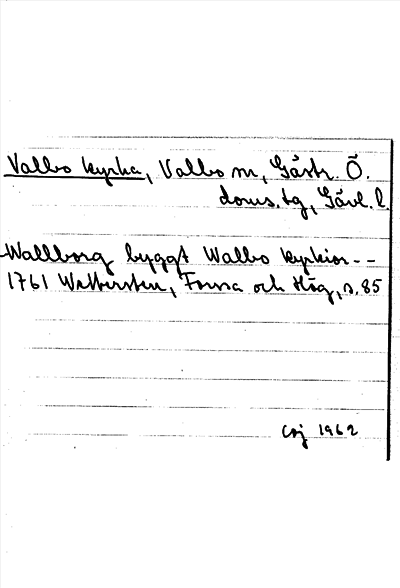 Valbo kyrka, Valbo sn, Gästr. Ö.
doms. tg, Gävl. l.
Wallborg byggt Walbo kyrkior--
1761 Wettersten, Forssa och Hög, s. 85
CEJ 1962